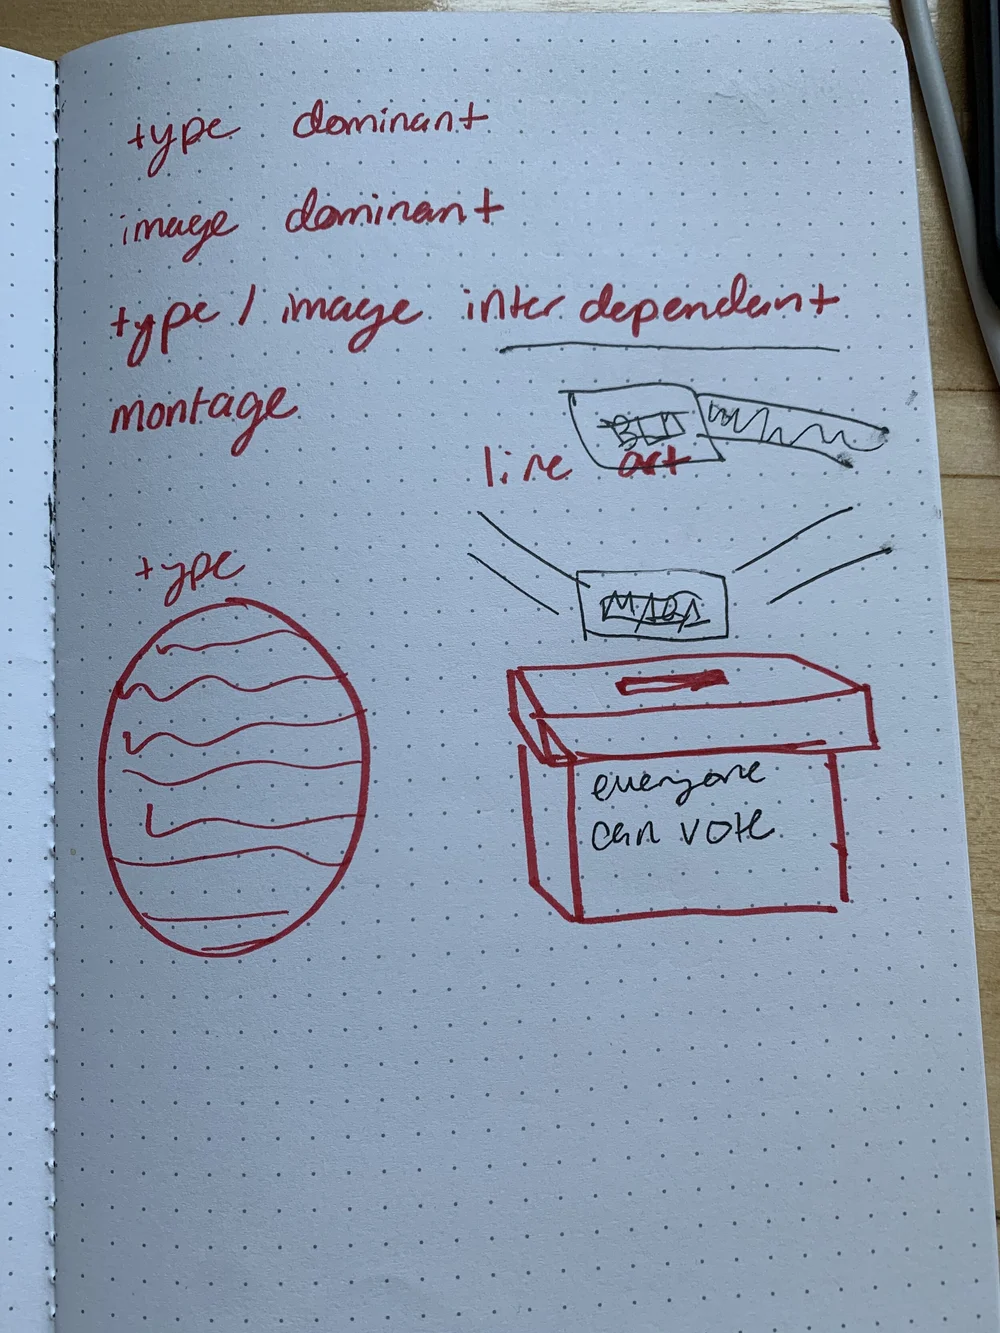 type dominant
image dominant
type / image interdependant
montage
line art
type
everyone
can vote